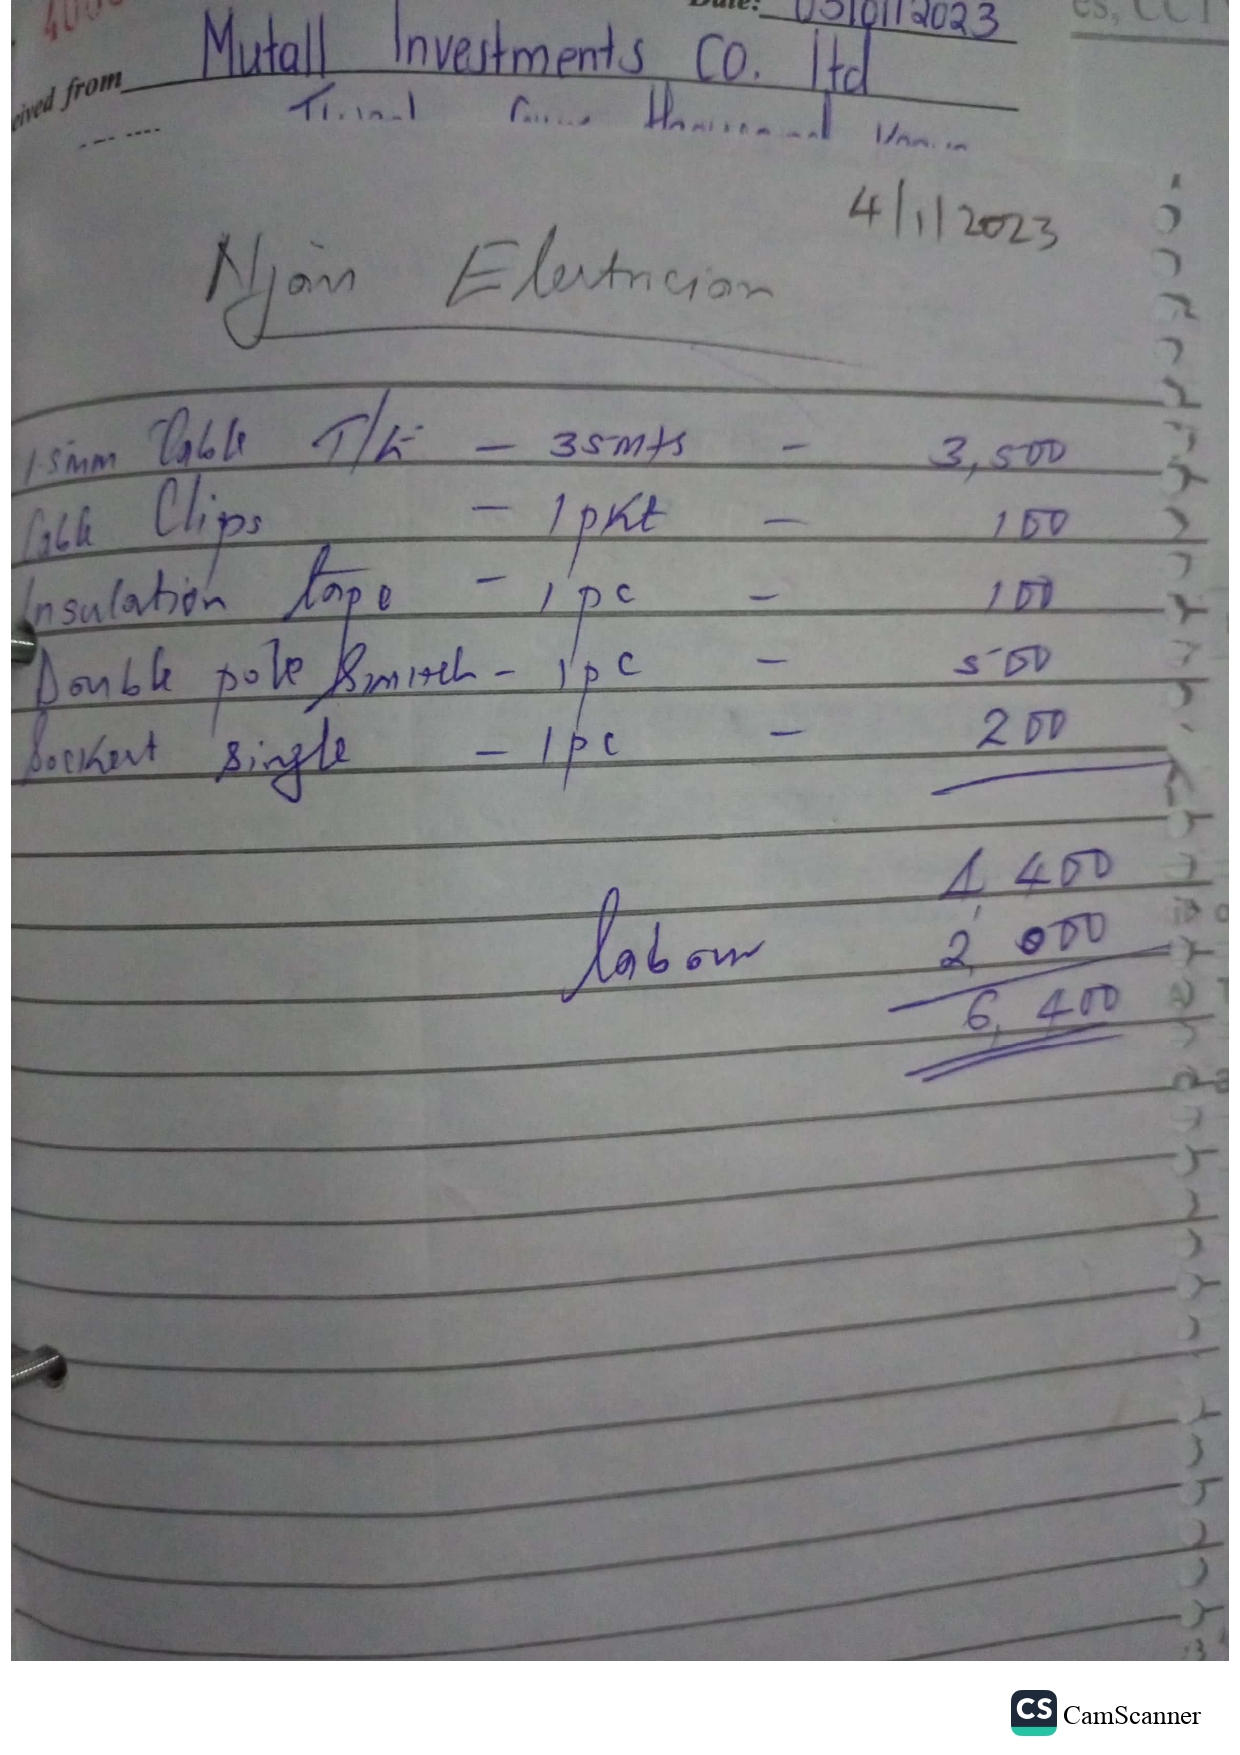 Date: 03/01/2023
es, CCT
400
Mutall Investments CO. ltd
eived from
4/1/2023
Njoin Electrician
1.5mm Cable T/E - 35mts - 3,500
Cable Clips - 1 pkt - 100
Insulation tape - 1 pc - 100
Double pole Switch - 1 pc - 500
Sockert single - 1 pc - 200
4,400
labour 2,000
6,400
CS CamScanner